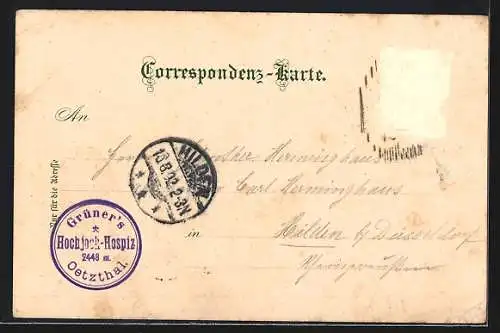 Correspondenz-Karte.
An
Herrn Günther Herminghaus
Carl Herminghaus
in Hilden b/ Düsseldorf
Rheinpreußen
Nur für die Adresse
HILDEN
10.8.02.2-3N
Grüner's
Hochjoch-Hospiz
2448 m.
Oetzthal.